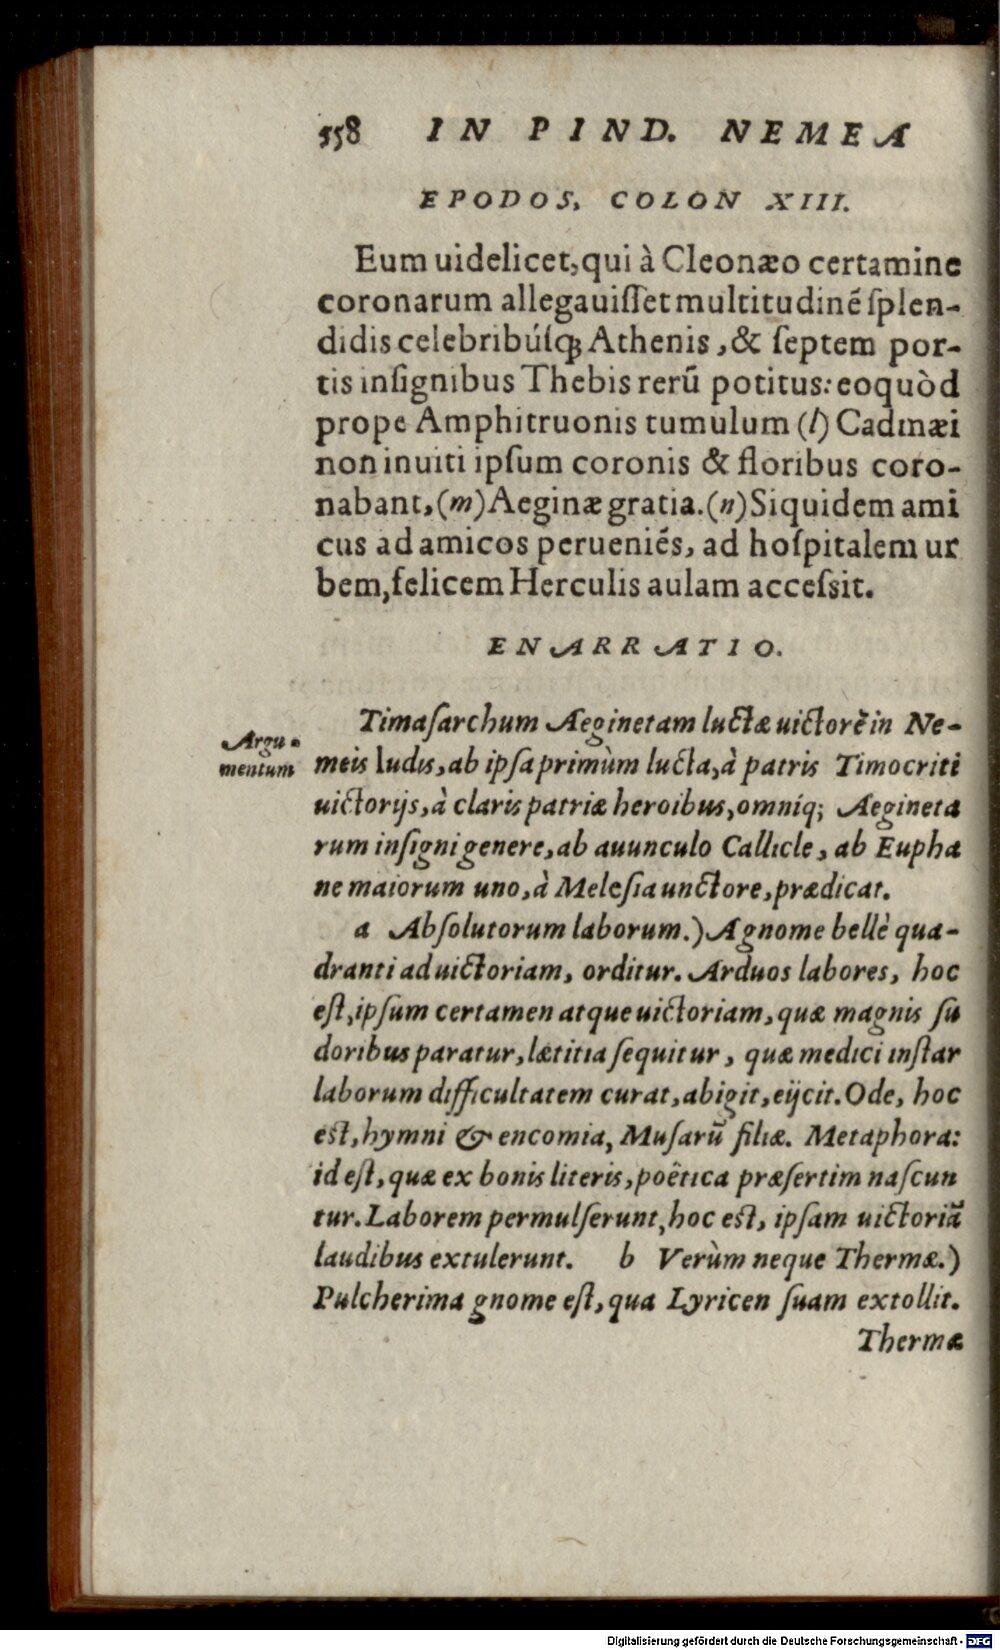 558 IN PIND. NEMEA
EPODOS, COLON XIII.
Eum uidelicet, qui à Cleonæo certamine
coronarum allegauiſſet multitudinẽ ſplen-
didis celebribúſq; Athenis, & ſeptem por-
tis inſignibus Thebis rerũ potitus: eoquòd
prope Amphitruonis tumulum (l) Cadmæi
non inuiti ipſum coronis & floribus coro-
nabant, (m) Aeginæ gratia. (n) Siquidem ami
cus ad amicos perueniẽs, ad hoſpitalem ur
bem, felicem Herculis aulam acceſsit.
ENARRATIO.
Timaſarchum Æeginetam luctæ uictorẽ in Ne-
Argu-
mentum
meis ludis, ab ipſa primùm lucta, à patris Timocriti
uictorijs, à claris patriæ heroibus, omníq; Aegineta
rum inſigni genere, ab auunculo Callicle, ab Eupha
ne maiorum uno, à Meleſia unctore, prædicat.
a Abſolutorum laborum.) A gnome bellè qua-
dranti ad uictoriam, orditur. Arduos labores, hoc
eſt, ipſum certamen atque uictoriam, quæ magnis ſu
doribus paratur, lætitia ſequitur, quæ medici inſtar
laborum difficultatem curat, abigit, eijcit. Ode, hoc
eſt, hymni & encomia, Muſarũ filiæ. Metaphora:
id eſt, quæ ex bonis literis, poëtica præſertim naſcun
tur. Laborem permulſerunt, hoc eſt, ipſam uictoriã
laudibus extulerunt. b Verùm neque Thermæ.)
Pulcherima gnome eſt, qua Lyricen ſuam extollit.
Thermæ
Digitalisierung gefördert durch die Deutsche Forschungsgemeinschaft - DFG